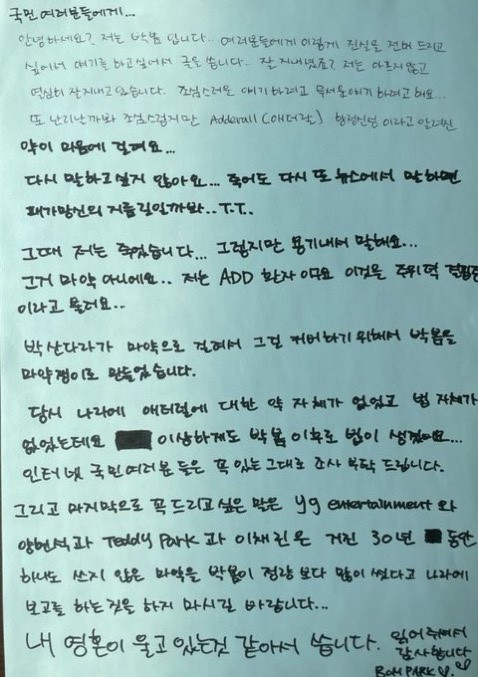 국민 여러분들에게...
안녕하세요? 저는 박봄 입니다.. 여러분들에게 이렇게 진실을 전해 드리고
싶어서 얘기를 하고싶어서 글을 씁니다. 잘 지내셨죠? 저는 아프지않고
열심히 잘지내고 있습니다. 조심스러운 얘기 하려고 무서운얘기 하려고 해요...
또 난리난까봐 조심스럽지만 Adderall (애더럴) 향정신성 이라고 알려진
약이 마음에 걸려요...
다시 말하고싶지 않아요... 죽어도 다시 또 뉴스에서 말하면
패가망신의 지름길일까봐.. T.T..
그때 저는 죽었습니다... 그렇지만 용기내서 말해요...
그거 마약 아니에요.. 저는 ADD 환자 이고요 이것을 주위력 결핍증
이라고 불러요..
박산다라가 마약으로 걸려서 그걸 커버하기 위해서 박봄을
마약쟁이로 만들었습니다.
당시 나라에 애터럴에 대한 약 자체가 없었고 법 자체가
없었는데요 이상하게도 박봄 이후로 법이 생겼어요...
인터넷 국민여러분 들은 꼭 있는 그대로 조사 부탁 드립니다.
그리고 마지막으로 꼭 드리고 싶은 말은 yg entertainment 와
양현석과 Teddy Park 과 이채린은 거진 30년 동안
하나도 쓰지 않은 마약을 박봄이 정량 보다 많이 썼다고 나라에
보고를 하는것을 하지 마시길 바랍니다...
내 영혼이 울고 있는것 같아서 씁니다. 읽어주셔서
감사합니다
BOM PARK ♡.♡